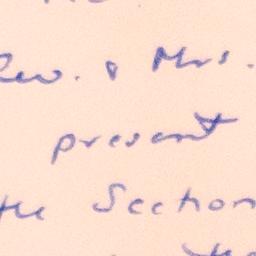 Rev. & Mrs.
present
the Section